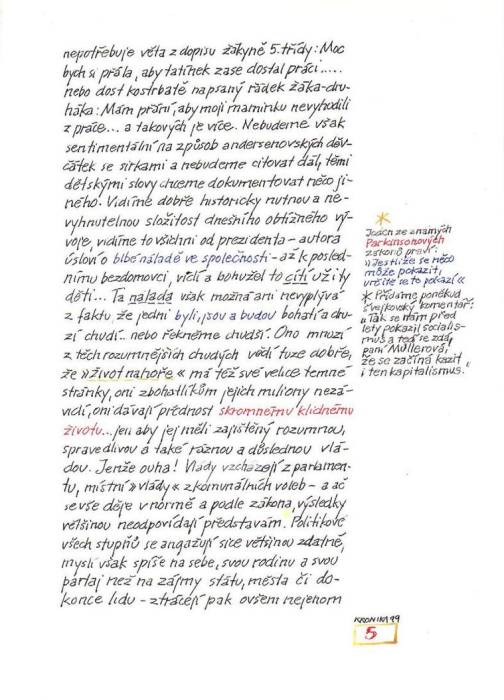 nepotřebuje věta z dopisu žákyně 5. třídy: Moc
bych si přála, aby tatínek zase dostal práci.....
nebo dost kostrbatě napsaný řádek žáka-dru-
háka: Mám přání, aby moji maminku nevyhodili
z práce... a takových je více. Nebudeme však
sentimentální na způsob andersenovských děv-
čátek se sirkami a nebudeme citovat dál, těmi
dětskými slovy chceme dokumentovat něco ji-
ného. Vidíme dobře historicky nutnou a ne-
vyhnutelnou složitost dnešního obtížného vý-
voje, vidíme to všichni od prezidenta - autora
úsloví o blbé náladě ve společnosti - až k posled-
nímu bezdomovci, vidí a bohužel to cítí už i ty
děti... Ta nálada však možná ani nevyplývá
z faktu že jedni byli, jsou a budou bohatí a dru-
zí chudí... nebo řekněme chudší. Ono mnozí
z těch rozumnějších chudých vědí tuze dobře,
že »život nahoře« má též své velice temné
stránky, oni zbohatlíkům jejich miliony nezá-
vidí, oni dávají přednost skromnému klidnému
životu... jen aby jej měli zajištěný rozumnou,
spravedlivou a také ráznou a důslednou vlá-
dou. Jenže ouha! Vlády vzcházejí z parlamen-
tu, místní »vlády« z komunálních voleb - a ač
se vše děje v normě a podle zákona, výsledky
většinou neodpovídají představám. Politikové
všech stupňů se angažují sice většinou zdatně,
myslí však spíše na sebe, svou rodinu a svou
partaj než na zájmy státu, města či do-
konce lidu - ztrácejí pak ovšem nejenom
*
Jeden ze známých
Parkinsonových
zákonů praví:
»Jestliže se něco
může pokazit,
určitě se to pokazí«
* Přidáme poněkud
švejkovský komentář:
"Tak se nám před
lety pokazil socialis-
mus a teď se zdá,
paní Müllerová,
že se začíná kazit
i ten kapitalismus."
KRONIKA 99
5